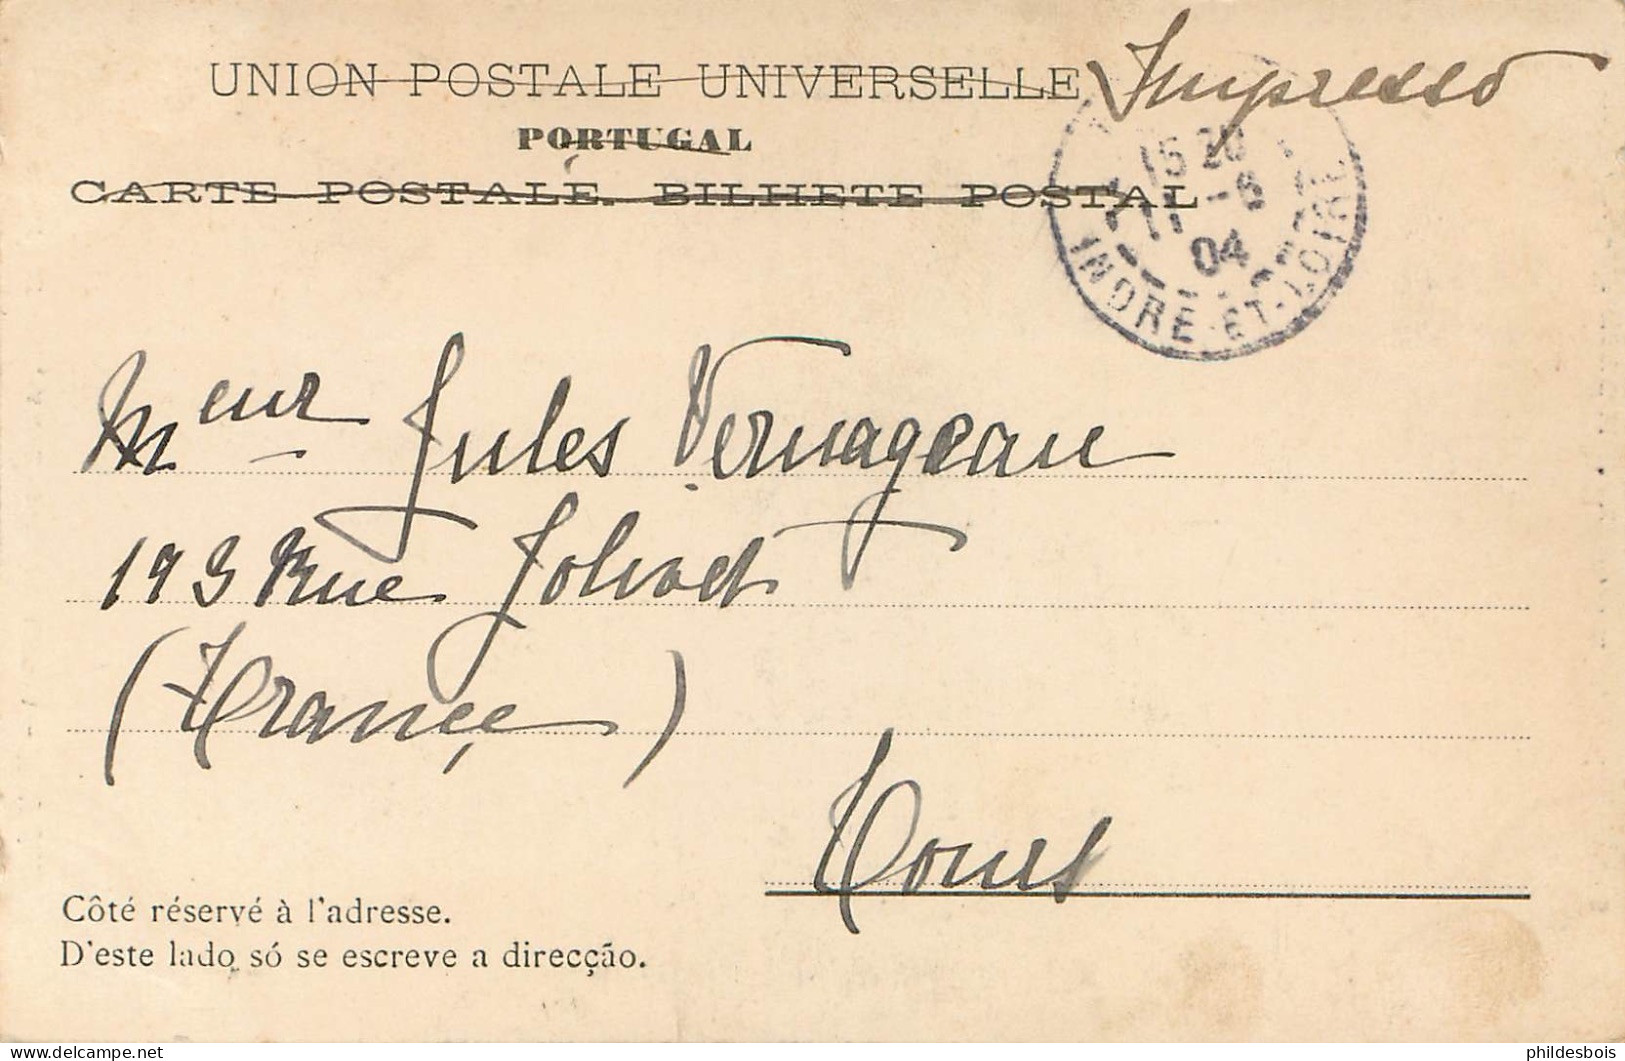 UNION POSTALE UNIVERSELLE Impresso
PORTUGAL
CARTE POSTALE. BILHETE POSTAL
15 20
11 -6
04
INDRE-ET-LOIRE
Meur Jules Vernageau
193 Rue Jolivet
(France)
Tours
Côté réservé à l'adresse.
D'este lado só se escreve a direcção.
phildesbois